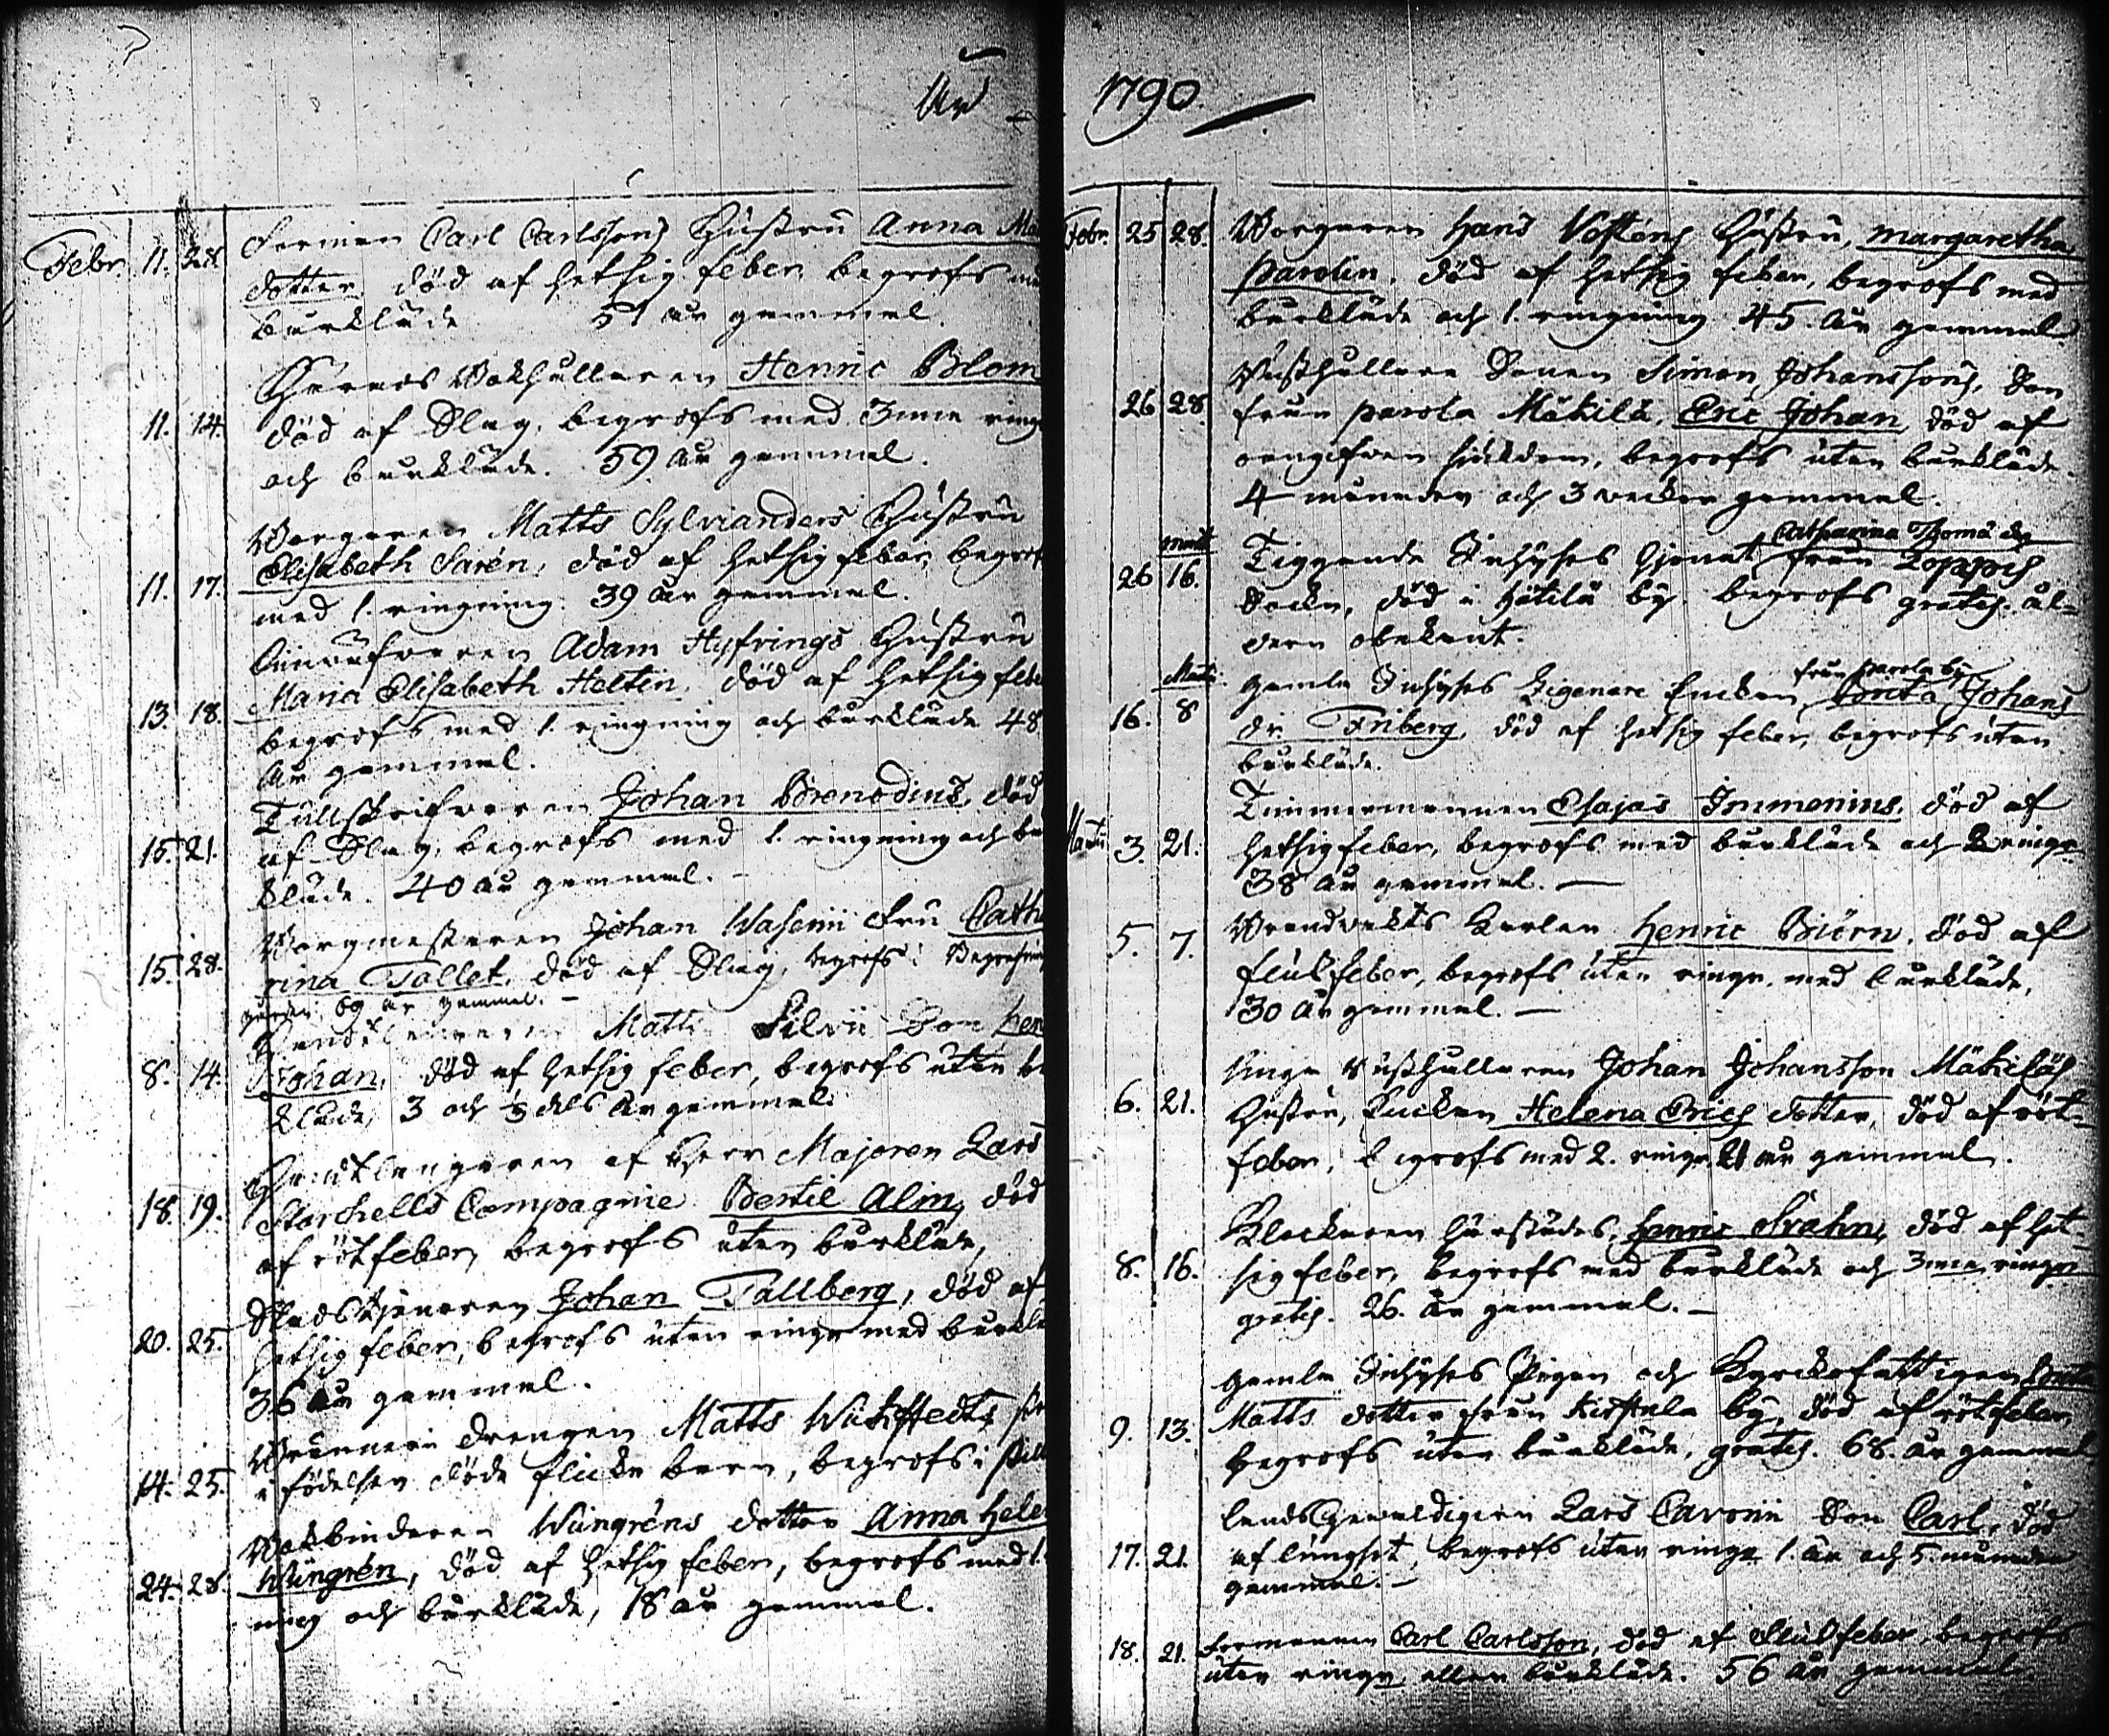 År
Febr. 11. Formen Carl Carlssons Hustru Anna
dotter, död af hetsig feber, begrofs
bårkläde 51 år gammal.
Henric Blom
11. 14. död af Slag, begrofs med 3nne
och bårkläde. 59 år gammal.
Borgaren Matts Sylvianders Hustru
11. 17. Elisabeth Sarén, död af hetsig feber,
med 1. ringning. 39 år gammal.
Adam Hyfrings Hustru
13. 18. Maria Elisabeth Heltin, död af hetsig
begrofs med 1. ringning och bårkläde 48
år gammal.
Tullskrifvaren Johan död
15. 21. af Slag, begrofs med 1. ringning och
kläde. 40 år gammal.
Borgmästaren Johan Wasenii Fru
15. 28. rina Tollet, död af Slag, begrofs i
69 år gammal.
Matts Silvii Son
8. 14. Johan, död af hetsig feber, begrofs utan
kläde, 3 och dels år gammal.
Handtlangaren af Herr Majoren Lars
18. 19. Storckells Compagnie Bertil Alm, död
af rötfeber, begrofs utan bårkläde,
Stadstjenaren Johan Tallberg, död af
20. 25. hetsig feber, begrofs utan ringn. med
36 år gammal.
drengen Matts
14. 25. i födelsen döde flicke barn, begrofs i
Bokbindaren Wüngréns dotter Anna
24. 28. Wüngrén, död af hetsig feber, begrofs med 1.
ning och bårkläde, 18 år gammal.
1790
Febr. 25 28. Borgaren Hans Hustru, Margaretha
Parolin, död af hetsig feber, begrofs med
bårkläde och 1. ringning 45. år gammal.
Rusthållare Sonen Simon Johanssons, Son
26 28. från Parola Mäkilä, Eric Johan, död af
okängifven siukdom, begrofs utan bårkläde.
4 månader och 3 veckor gammal.
Catharina Thomæ dr
26 16. Tiggande Inhyses Hjonet från
Sockn, död i Hätilä by. begrofs gratis. ål-
dern obekant.
från Parola by
16. 8 Gamla Inhyses Enkan Brita Johans
dr. Friberg, död af hetsig feber, begrofs utan
bårkläde.
Timmermannen Esajas Immonius, död af
3. 21. hetsig feber, begrofs med bårkläde och 2 ringn.
38 år gammal.
5. 7. Brandvakts Karlen Henric Biörn, död af
fläkfeber, begrofs utan ringn. med bårkläde,
30 år gammal.
Unge Rusthållaren Johan Johansson Mäkiläs
6. 21. Hustru, Enckan Helena Erics dotter, död af röt-
feber, begrofs med 2. ringn. 21 år gammal.
Klockaren härstädes, Henric Strahn, död af het-
8. 16. sig feber, begrofs med bårkläde och 3nne ringn
gratis. 26. år gammal.
Gamla Inhyses Pigan och Kyrckofattigen Brita
9. 13. Matts dotter från Kirstula by, död af rötfeber
begrofs utan bårkläde, gratis. 68. år gammal
Lands Gewaldigern Lars Cavonii Son Carl, död
17. 21. af lungsot, begrofs utan ringn. 1. år och 5. månader
gammal.
18. 21. Formannen Carl Carlsson, död af fläkfeber, begrofs
utan ringn. eller bårkläde. 56 år gammal.